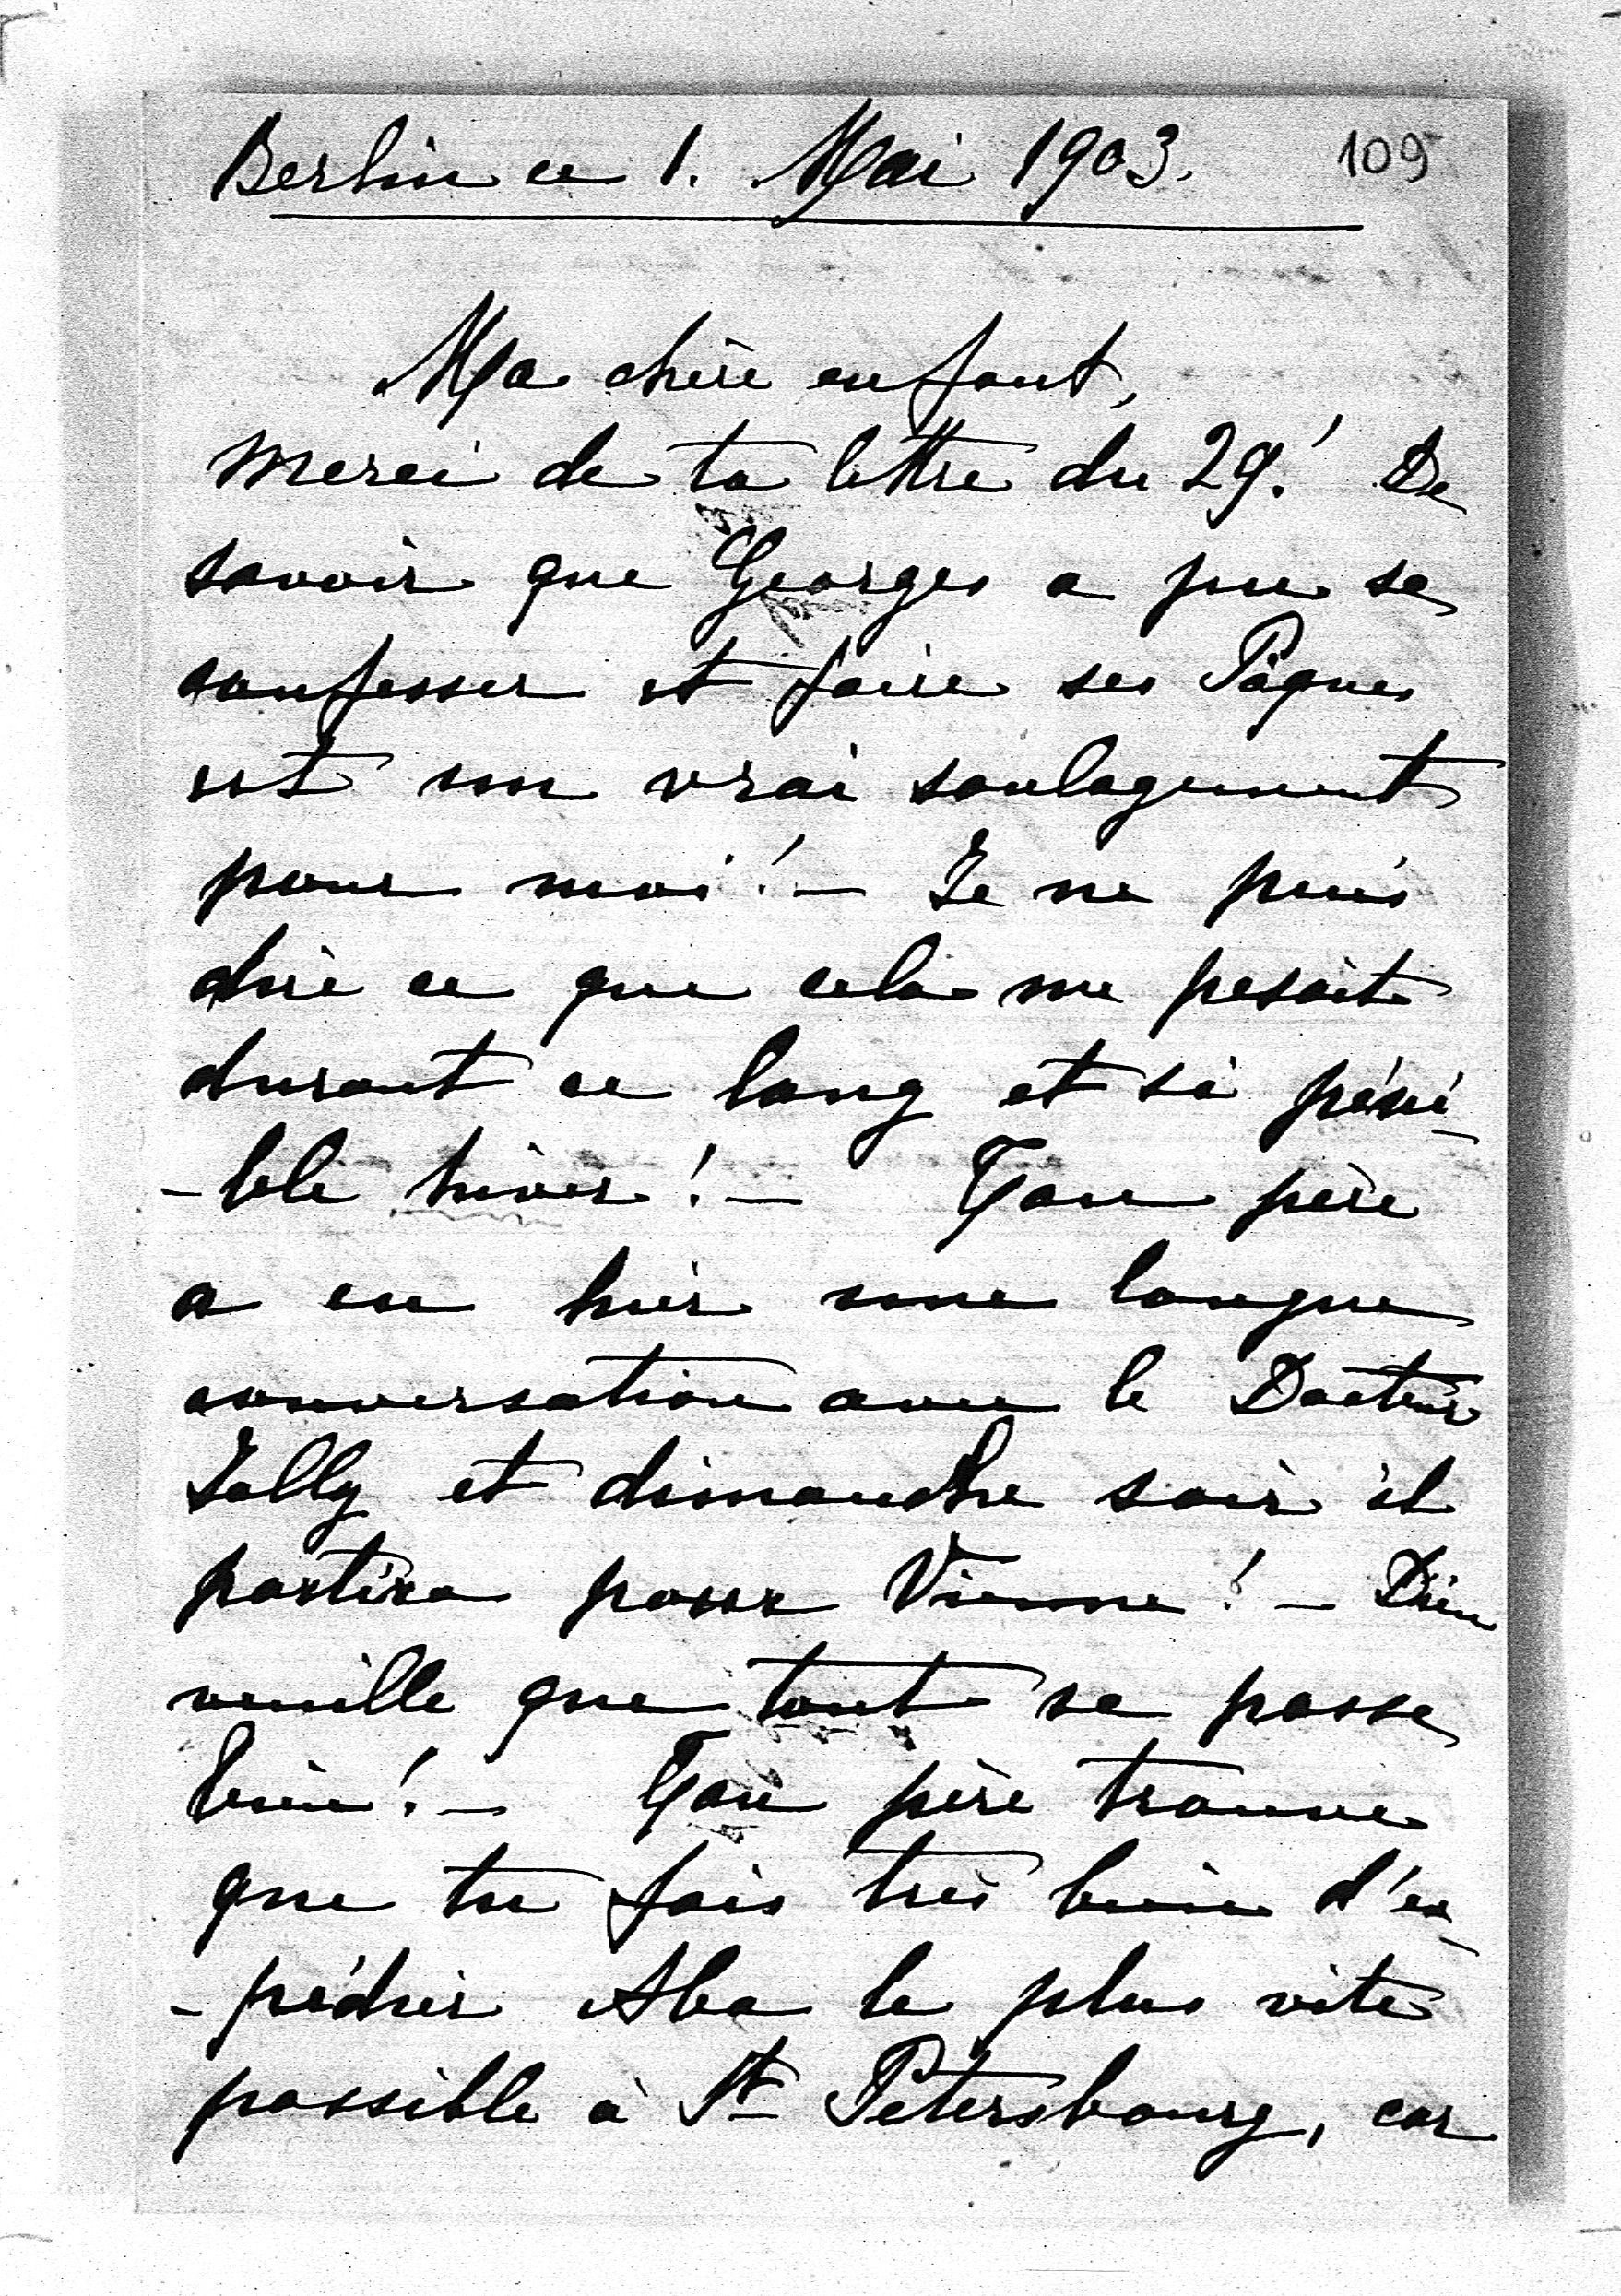 Berlin ce 1. Mai 1903. 109
Ma chère enfant,
merci de ta lettre du 29.! De
savoir que Georges a pu se
confesser et faire ses Pâques
est un vrai soulagement
pour moi! – Je ne puis
dire ce que cela me pesait
durant ce long et si péni-
-ble hiver! – Ton père
a eu hier une longue
conversation avec le Docteur
Jolly et dimanche soir il
partira pour Vienne! – Dieu
veuille que tout se passe
bien! – Ton père trouve
que tu fais très bien d'ex-
-pédier Aba le plus vite
possible à St Pétersbourg, car